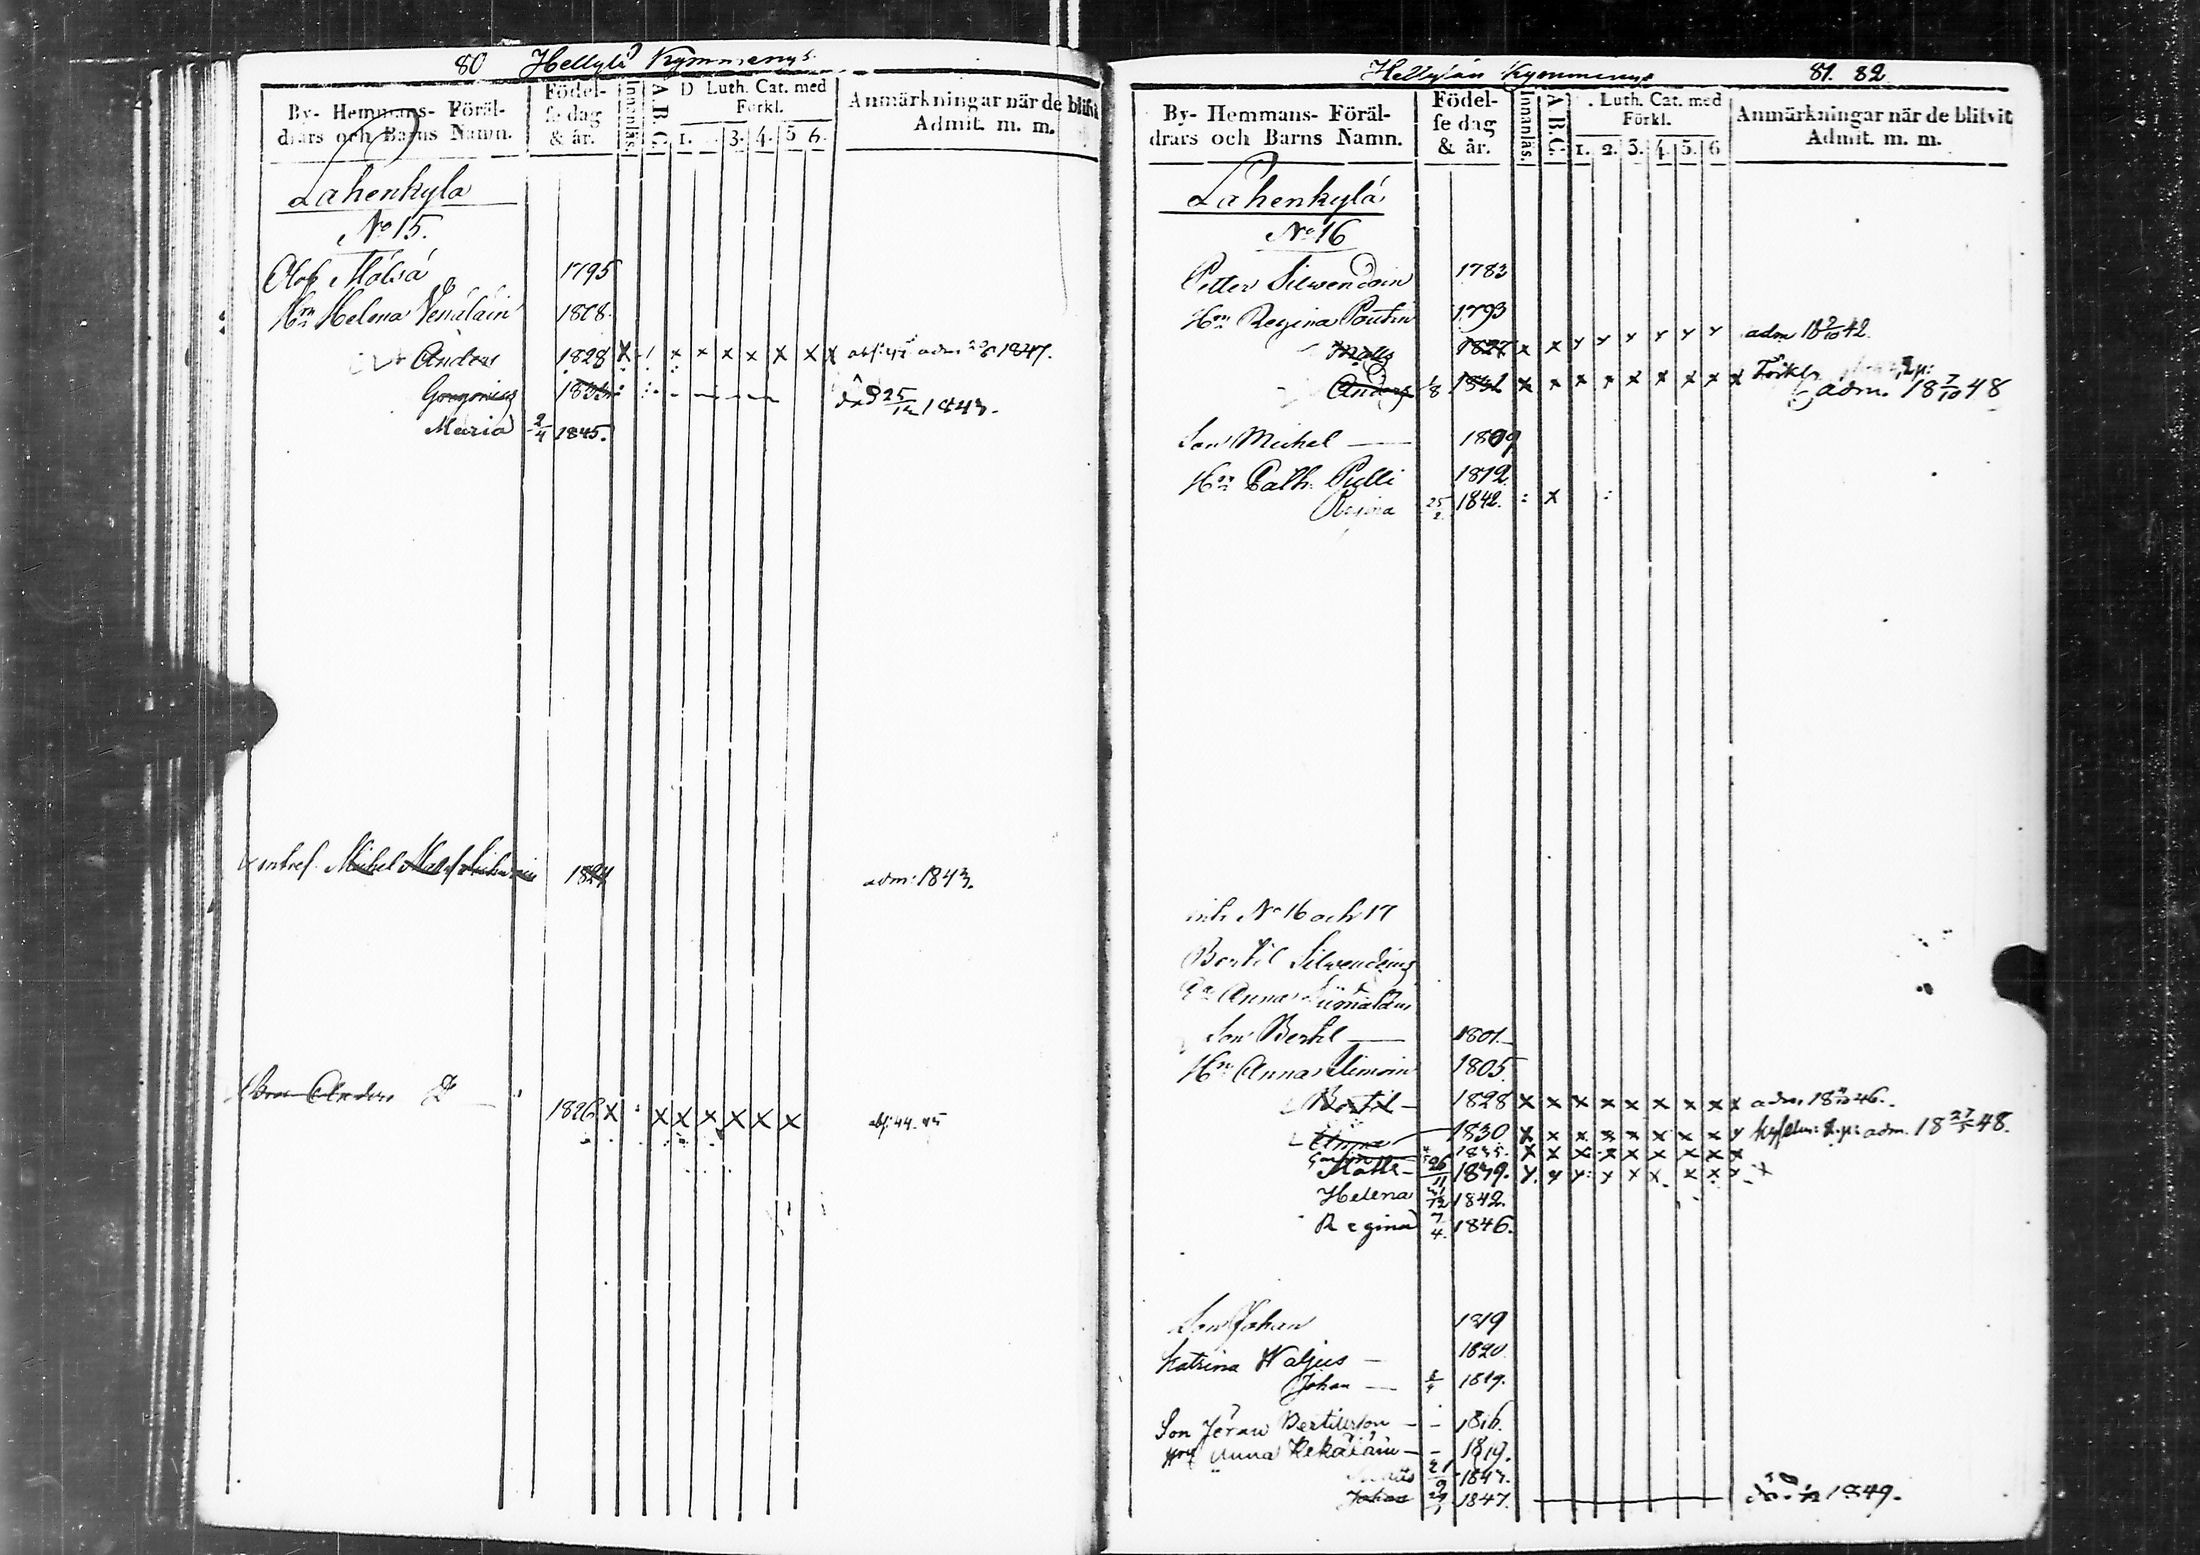 80 Hellylä Kymmenys
By- Hemmans- Föräl-
drars och Barns Namn.
Födel-
se dag
& år.
Innanläs.
A.B.C.
D Luth. Cat. med
Förkl.
1. 3. 4. 5 6.
Anmärkningar när de blifvit
Admit. m. m.
Lahenkylä
No 15.
Olof Mälsä 1795
Hn Helena Venäläin 1808.
Anders 1828 adm 1847.
Gregorius 1833 25/12 1843.
Maria 2/4 1845.
Michel 1824 adm: 1843.
Anders 1826 abs: 44. 45
Hellylän Kymmenys 81. 82
By- Hemmans- Föräl-
drars och Barns Namn.
Födel-
se dag
& år.
Innanläs.
A.B.C.
. Luth. Cat. med
Förkl.
1. 2. 3. 4. 5. 6
Anmärkningar när de blifvit
Admit. m. m.
Lahenkylä
No 16
Petter Silwendoin 1783
Hn Regina Poutin 1793
Matts 1827 adm 18 9/10 42.
Anders 1832 adm. 18 7/10 48
Son Michel — 1809
Hn Cath. Pulli 1812
Regina 25/2 1842.
inh. No 16 och 17
Bertil Silwendoin
Anna
Son Bertil — 1801.
Hn Anna Simoin 1805
Bertil — 1828 adm. 46.
Anna 1830 adm. 18 48.
1835.
Matts — 26/11 1839.
Helena 1842.
Regina 7/4. 1846.
Son Johan 1819
Katrina Waljus — 1820
Johan — 1849.
Son Jöran Bertilsson — 1816.
Anna Rekäläin — 1819.
1847.
Johan 1847. 1849.